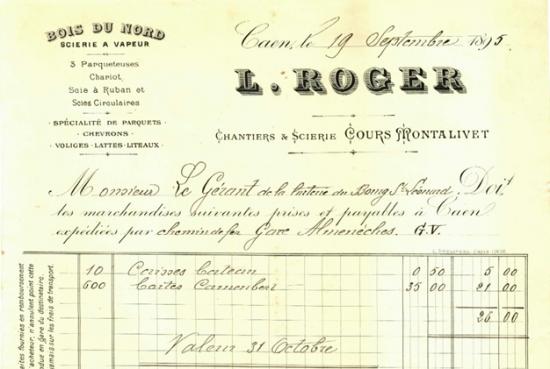 BOIS DU NORD
SCIERIE A VAPEUR
3 Parqueteuses
Chariot,
Scie à Ruban et
Scies Circulaires
· SPÉCIALITÉ DE PARQUETS ·
· CHEVRONS ·
· VOLIGES · LATTES · LITEAUX ·
Caen, le 19 Septembre 1895.
L. ROGER
CHANTIERS & SCIERIE COURS MONTALIVET
Monsieur Le Gérant de la du Bourg St Léonard, Doit
les marchandises suivantes prises et payables à Caen
expédiées par chemin de fer Gare Almenèches. G.V.
10 0 50 5 00
600 Boîtes Camembert 35 00 21 00
26 00
Valeur 31 Octobre
fournies en remboursement
l'acheteur, n'annulent point cette
en gare du destinataire.
sur les frais de transport.